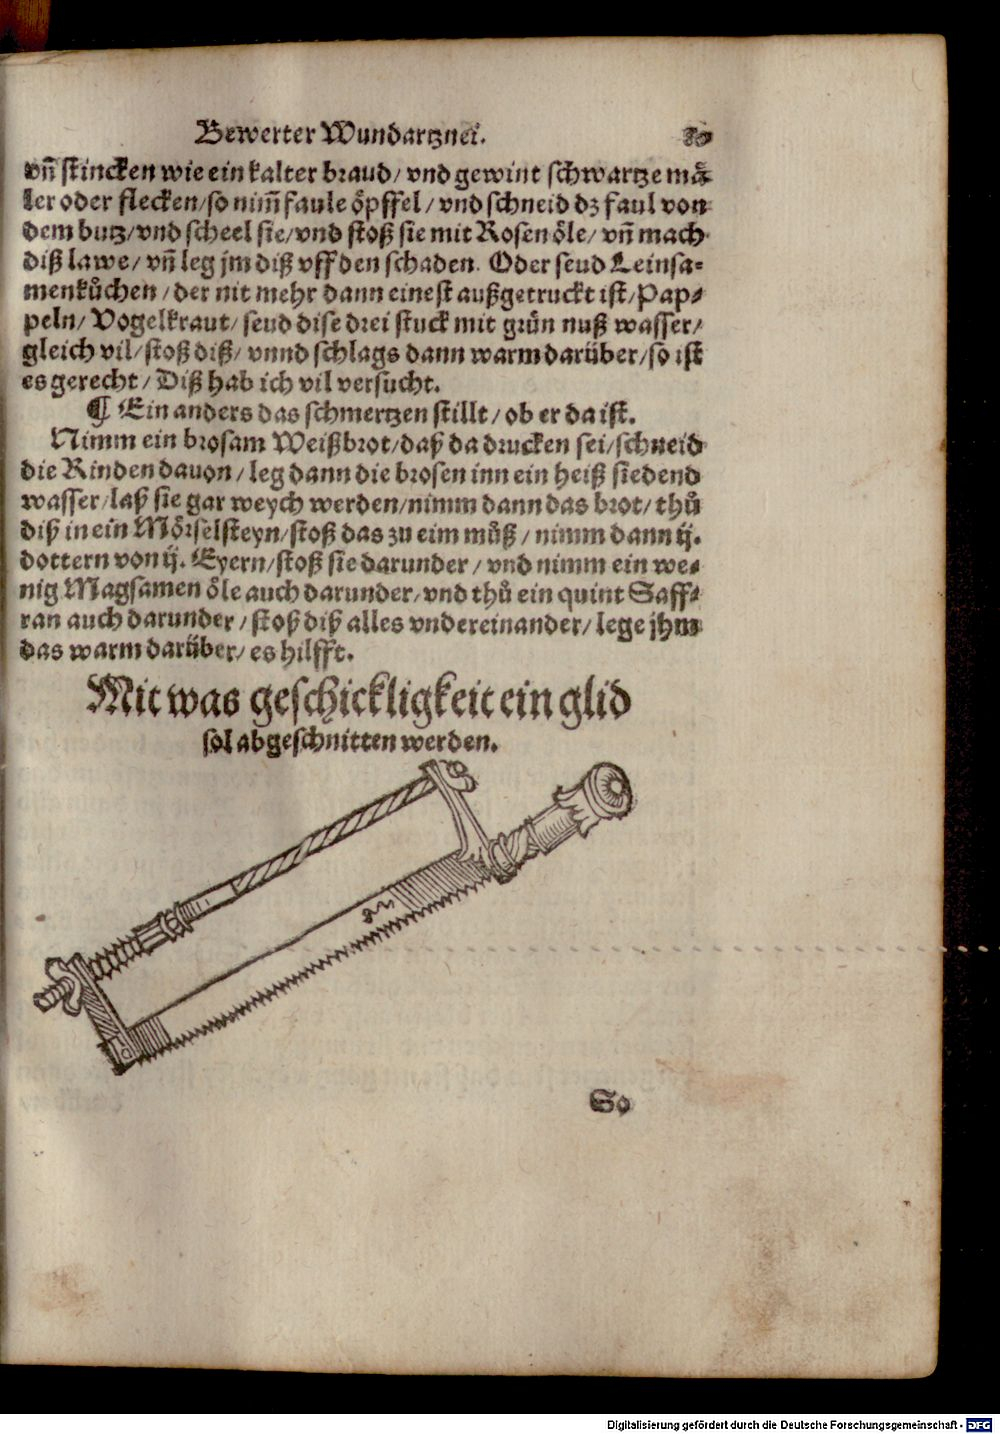 Bewerter Wundartznei. 80
vñ stincken wie ein kalter brand/ vnd gewint schwartze mä-
ler oder flecken/ so nim̃ faule öpffel/ vnd schneid dz faul von
dem butz/ vnd scheel sie/ vnd stoß sie mit Rosen öle/ vñ mach
diß lawe/ vñ leg jm diß vff den schaden. Oder seud Leinsa-
menkůchen/ der nit mehr dann einest außgetruckt ist/ Pap-
peln/ Vogelkraut/ seud dise drei stuck mit grün nuß wasser/
gleich vil/ stoß diß/ vnnd schlags dann warm darüber/ so ist
es gerecht/ Diß hab ich vil versucht.
¶ Ein anders das schmertzen stillt/ ob er da ist.
Nimm ein brosam Weißbrot/ daß da drucken sei/ schneid
die Rinden dauon/ leg dann die brosen inn ein heiß siedend
wasser/ laß sie gar weych werden/ nimm dann das brot/ thů
diß in ein Mörselsteyn/ stoß das zu eim můß/ nimm dann ij.
dottern von ij. Eyern/ stoß sie darunder/ vnd nimm ein we-
nig Magsamen öle auch darunder/ vnd thů ein quint Saff-
ran auch darunder/ stoß diß alles vndereinander/ lege jhm
das warm darüber/ es hilfft.
Mit was geschickligkeit ein glid
sol abgeschnitten werden.
So
Digitalisierung gefördert durch die Deutsche Forschungsgemeinschaft - DFG